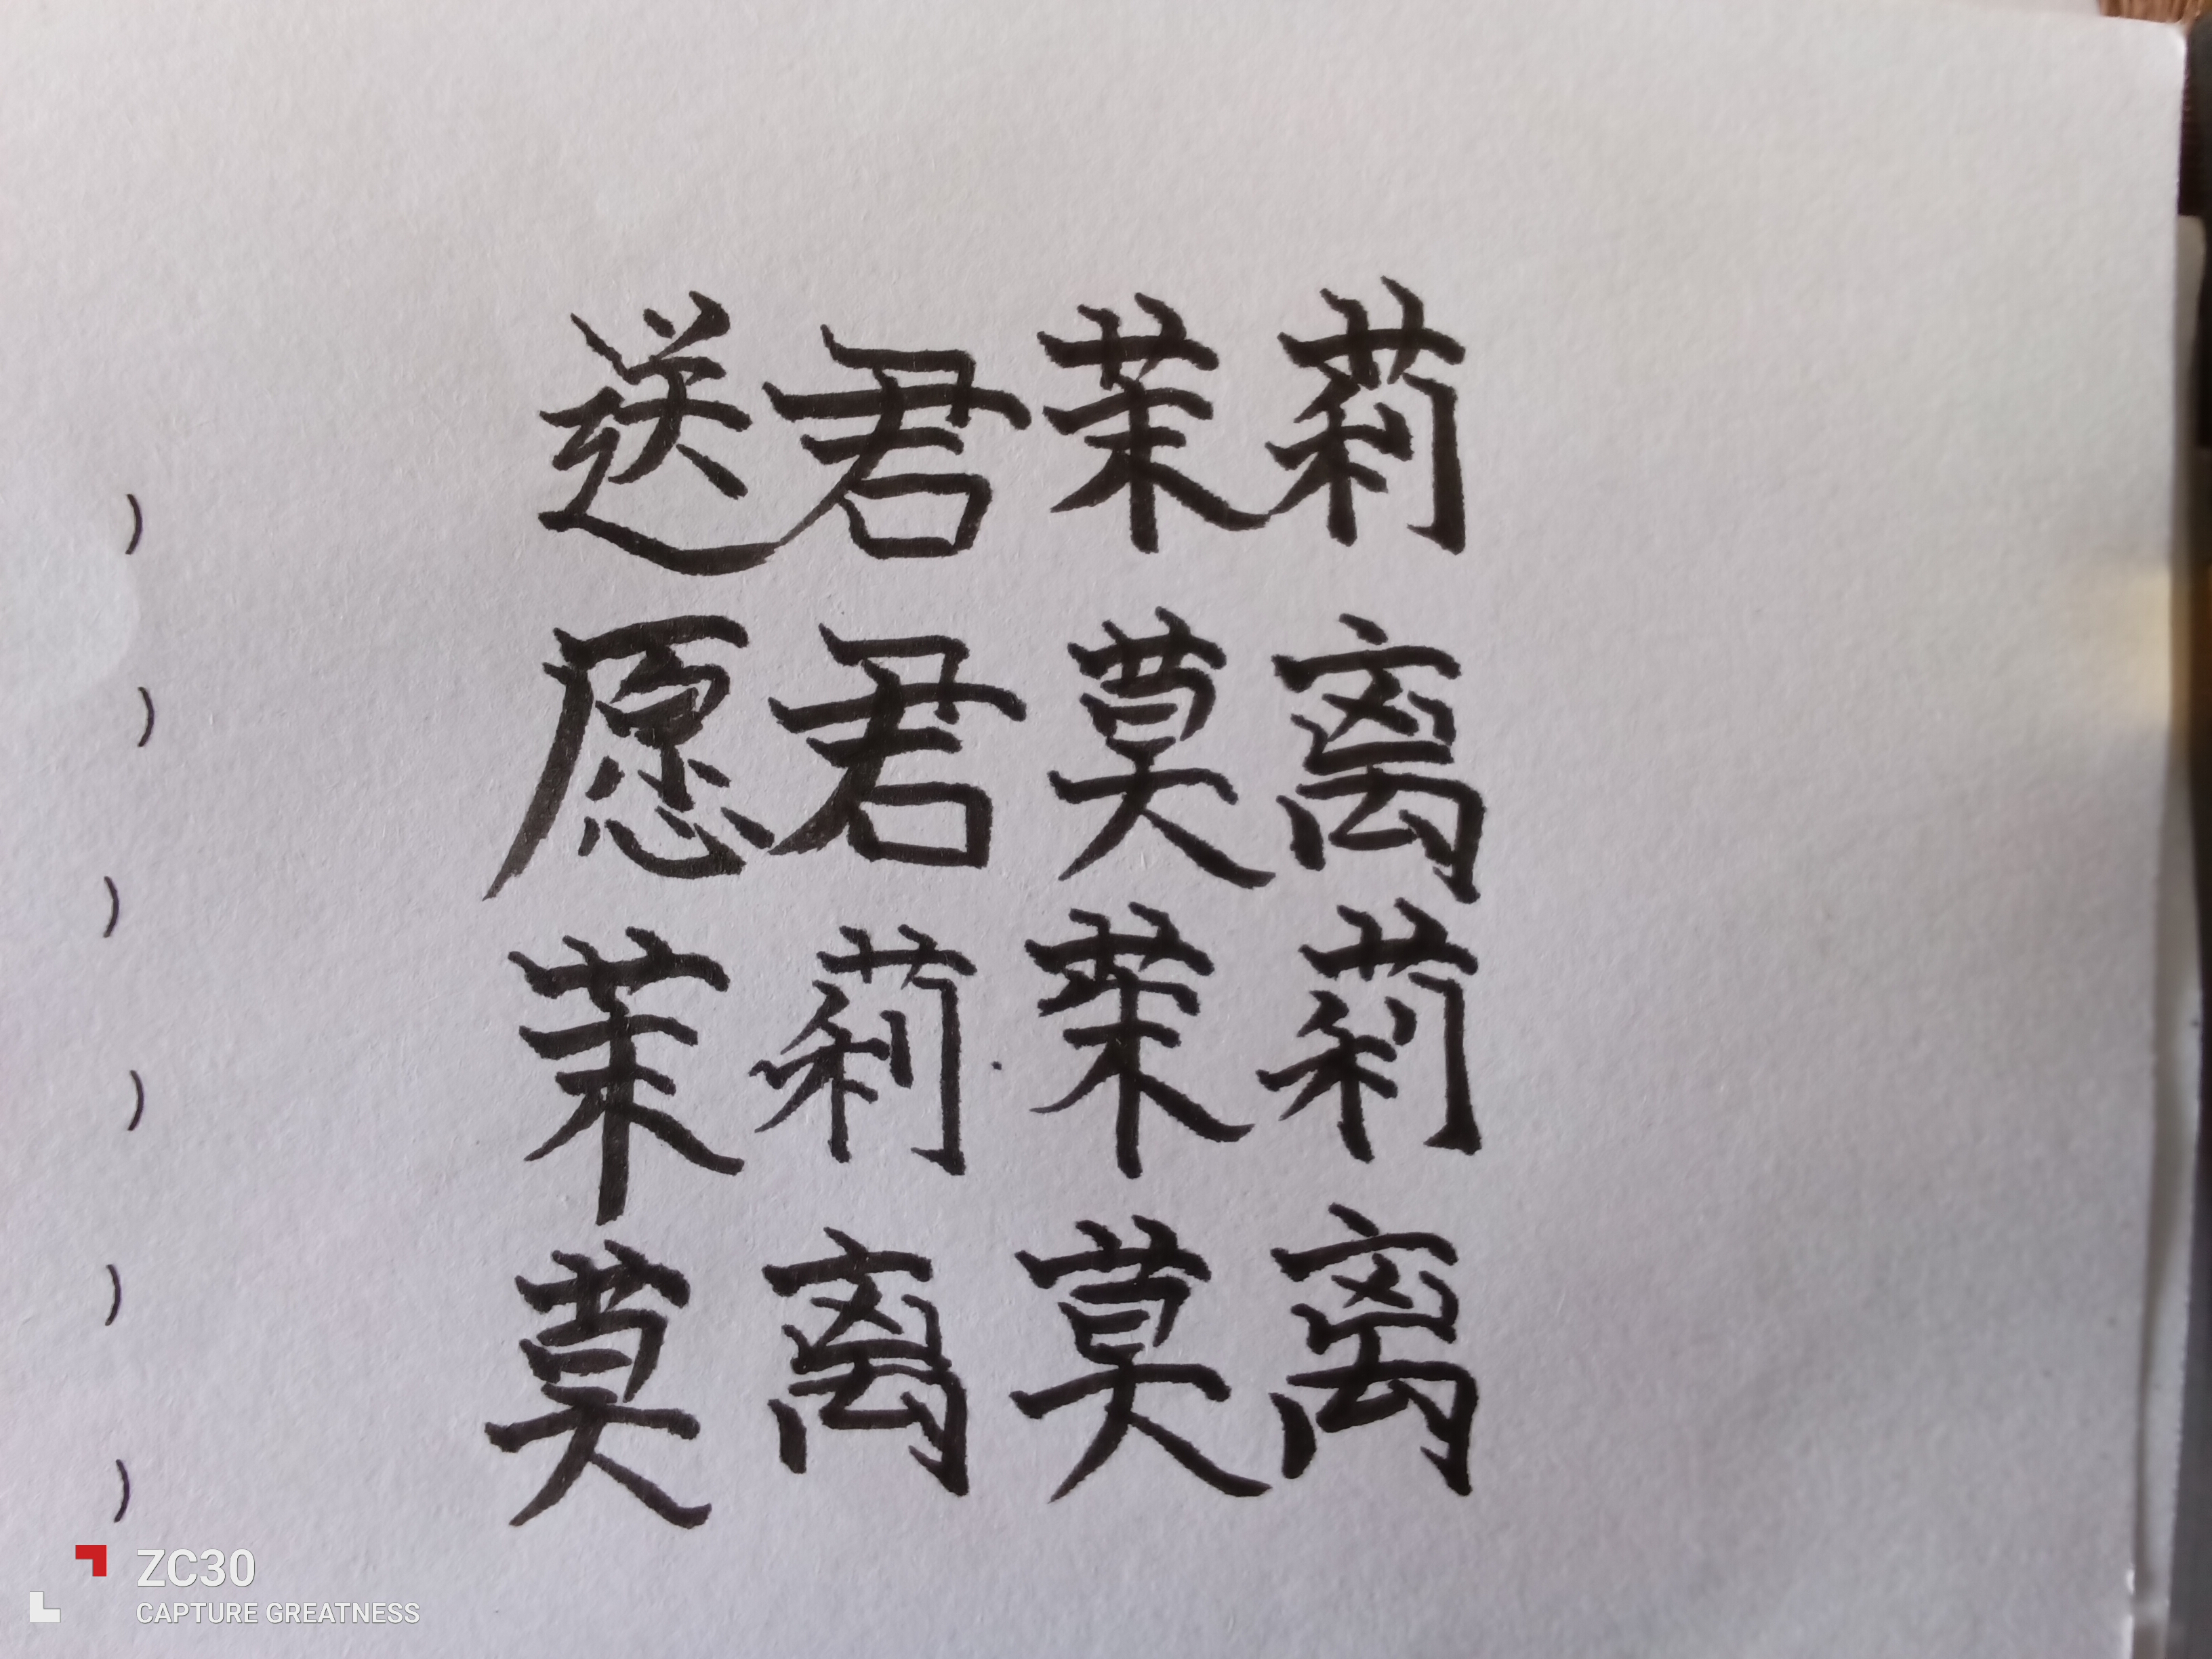 送君茉莉
愿君莫离
茉莉茉莉
莫离莫离
ZC30
CAPTURE GREATNESS